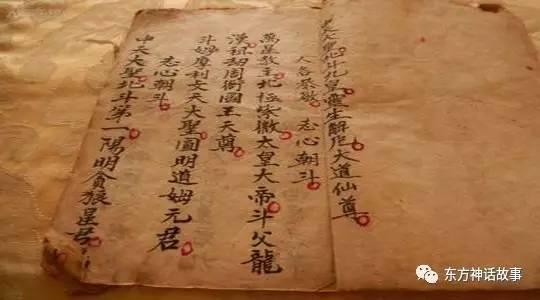 天大聖北斗九皇生解厄大道仙尊
人各恭敬 志心朝斗
萬星教主北極紫微太皇大帝斗父龍
漢祖劫周御國王天尊
斗姆摩利支天大聖圓明道姆元君
志心朝斗
中天大聖北斗第一陽明貪狼星君
东方神话故事